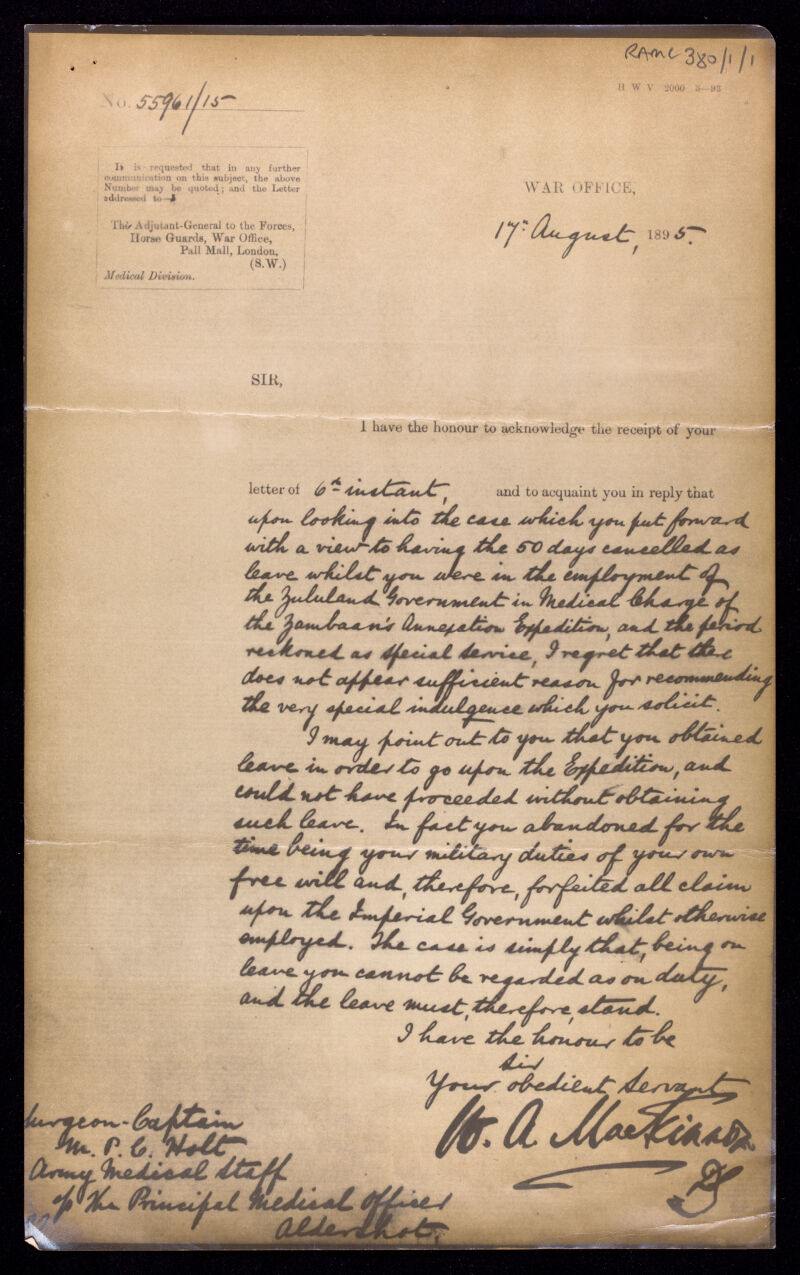 RAMC 380/1/1
H W V 2000 5—93
No. 55961/15
It is requested that in any further
communication on this subject, the above
Number may be quoted; and the Letter
addressed to—
The Adjutant-General to the Forces,
Horse Guards, War Office,
Pall Mall, London,
(S.W.)
Medical Division.
WAR OFFICE,
17th August, 1895.
SIR,
I have the honour to acknowledge the receipt of your
letter of 6th instant, and to acquaint you in reply that
upon looking into the case which you put forward
with a view to having the 50 days cancelled as
leave whilst you were in the employment of
the Zululand Government in Medical Charge of
the Zambaan's Annexation Expedition, and the period
reckoned as special service, I regret that there
does not appear sufficient reason for recommending
the very special indulgence which you solicit.
I may point out to you that you obtained
leave in order to go upon the Expedition, and
could not have proceeded without obtaining
such leave. In fact you abandoned for the
time being your military duties of your own
free will and, therefore, forfeited all claim
upon the Imperial Government whilst otherwise
employed. The case is simply that, being on
leave you cannot be regarded as on duty,
and the leave must, therefore, stand.
I have the honour to be
Sir
Your obedient Servant
W. A. MacKinnon
DG
Surgeon-Captain
M. P. C. Holt
Army Medical Staff
c/o The Principal Medical Officer
Aldershot.